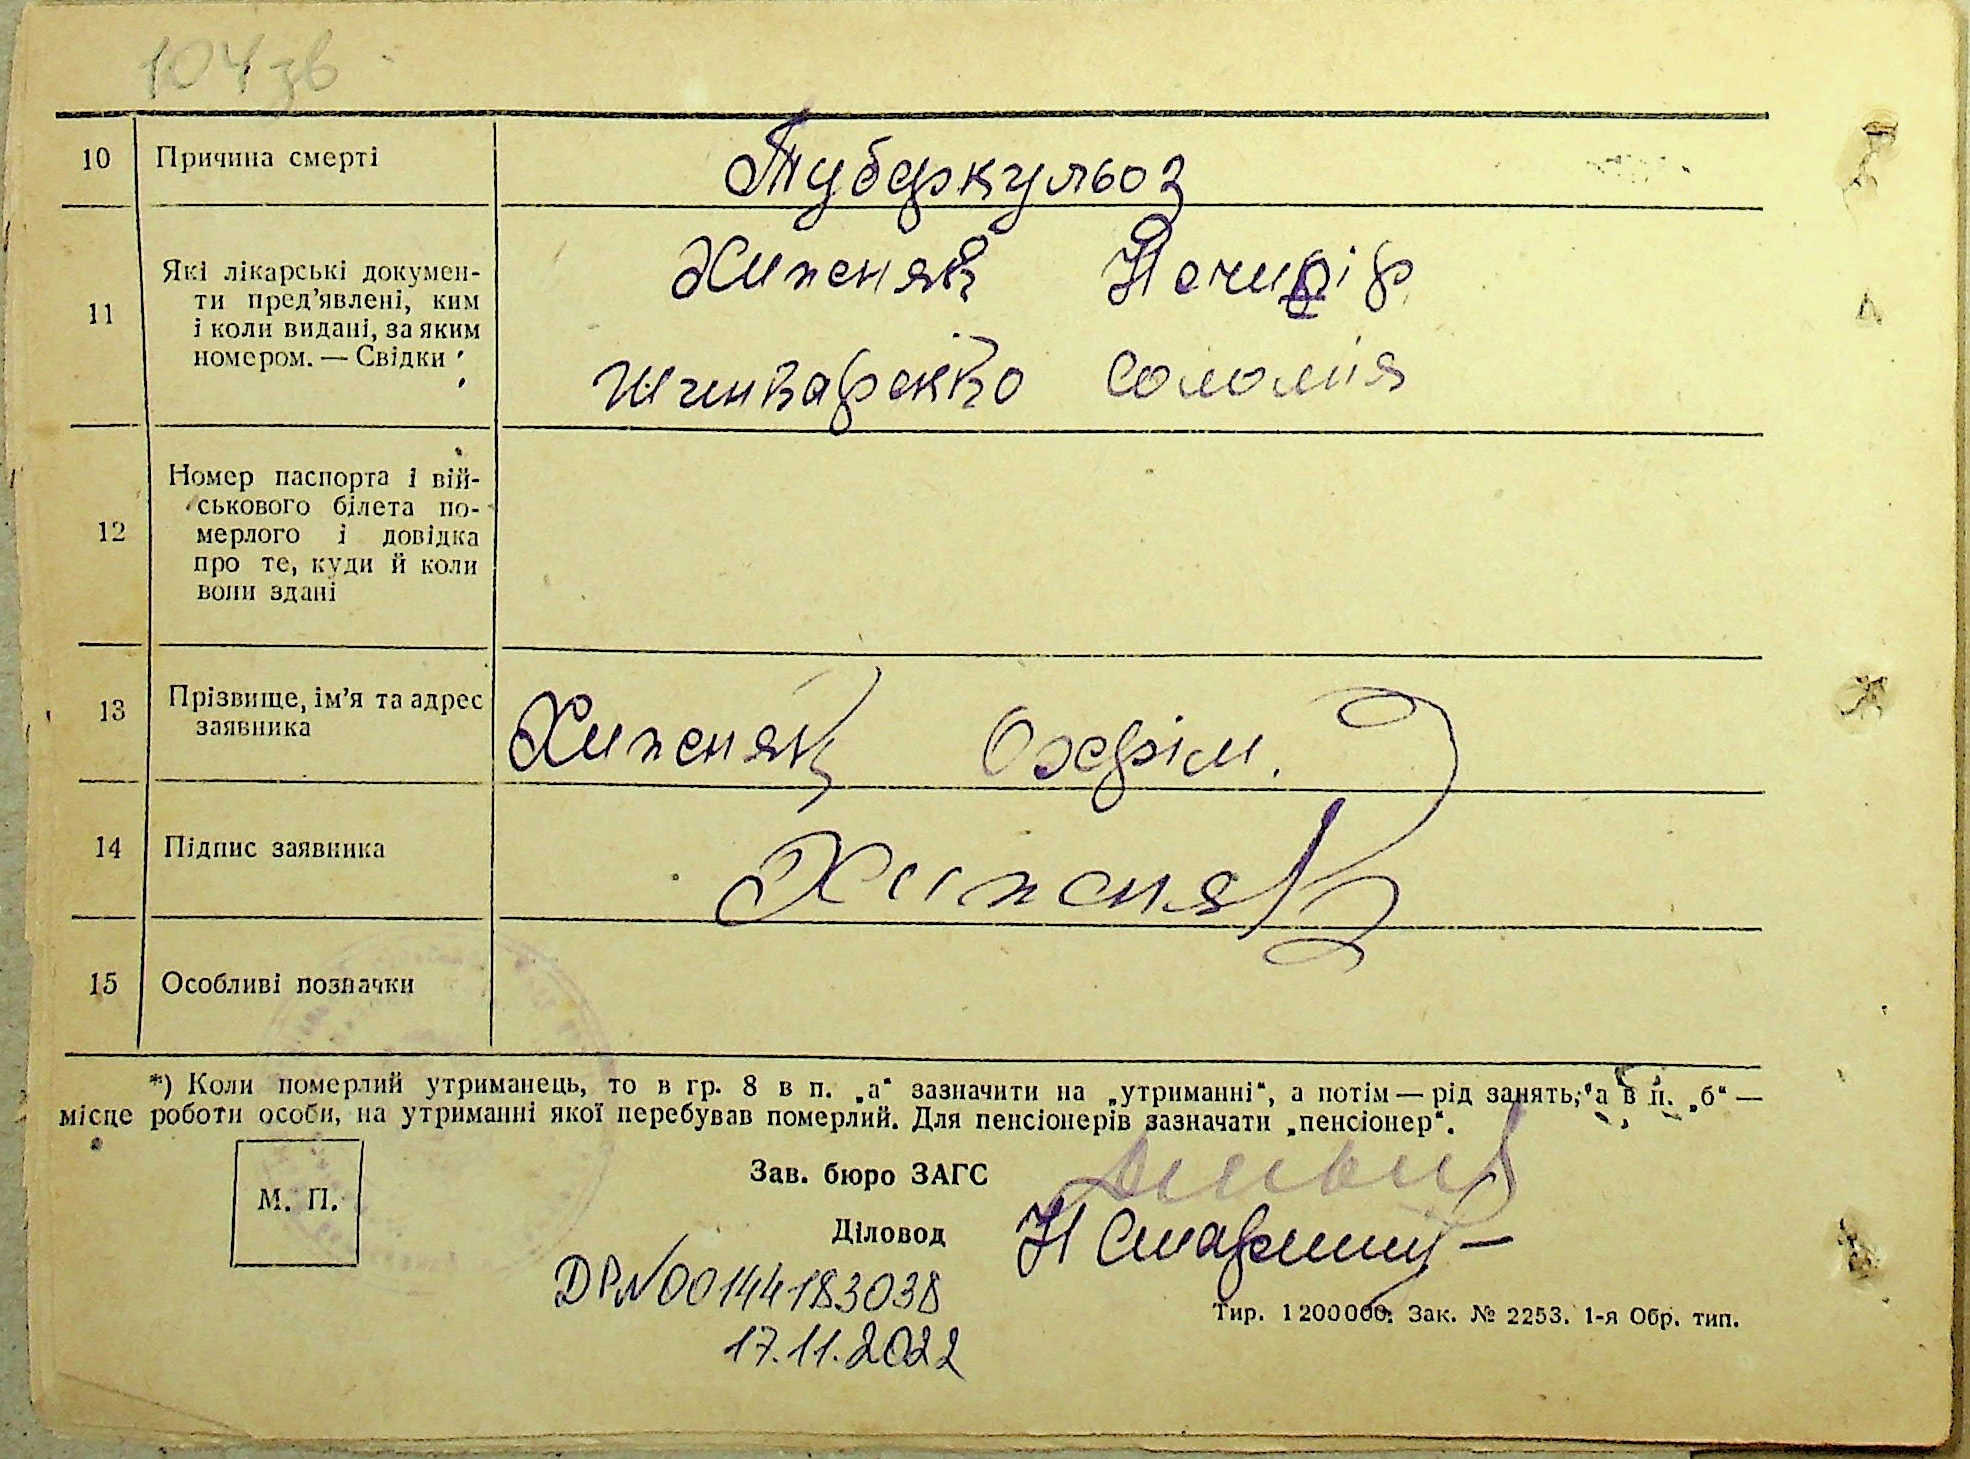 104 зв
10 Причина смерті Туберкульоз
11 Які лікарські докумен-
ти пред'явлені, ким
і коли видані, за яким
номером. — Свідки
Хиженяк Нечипір
Соломія
12 Номер паспорта і вій-
ськового білета по-
мерлого і довідка
про те, куди й коли
вони здані
13 Прізвище, ім'я та адрес
заявника
Хиженяк
14 Підпис заявника Хиженяк
15 Особливі позначки
*) Коли померлий утриманець, то в гр. 8 в п. „а“ зазначити на „утриманні“, а потім — рід занять, а в п. „б“ —
місце роботи особи, на утриманні якої перебував померлий. Для пенсіонерів зазначати „пенсіонер“.
М. П.
Зав. бюро ЗАГС
Діловод
DPN00144183038
17.11.2022
Тир. 1200000. Зак. № 2253. 1-я Обр. тип.